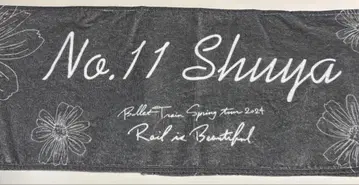 No.11 Shuya
Bullet Train Spring tour 2024
Rail is Beautiful